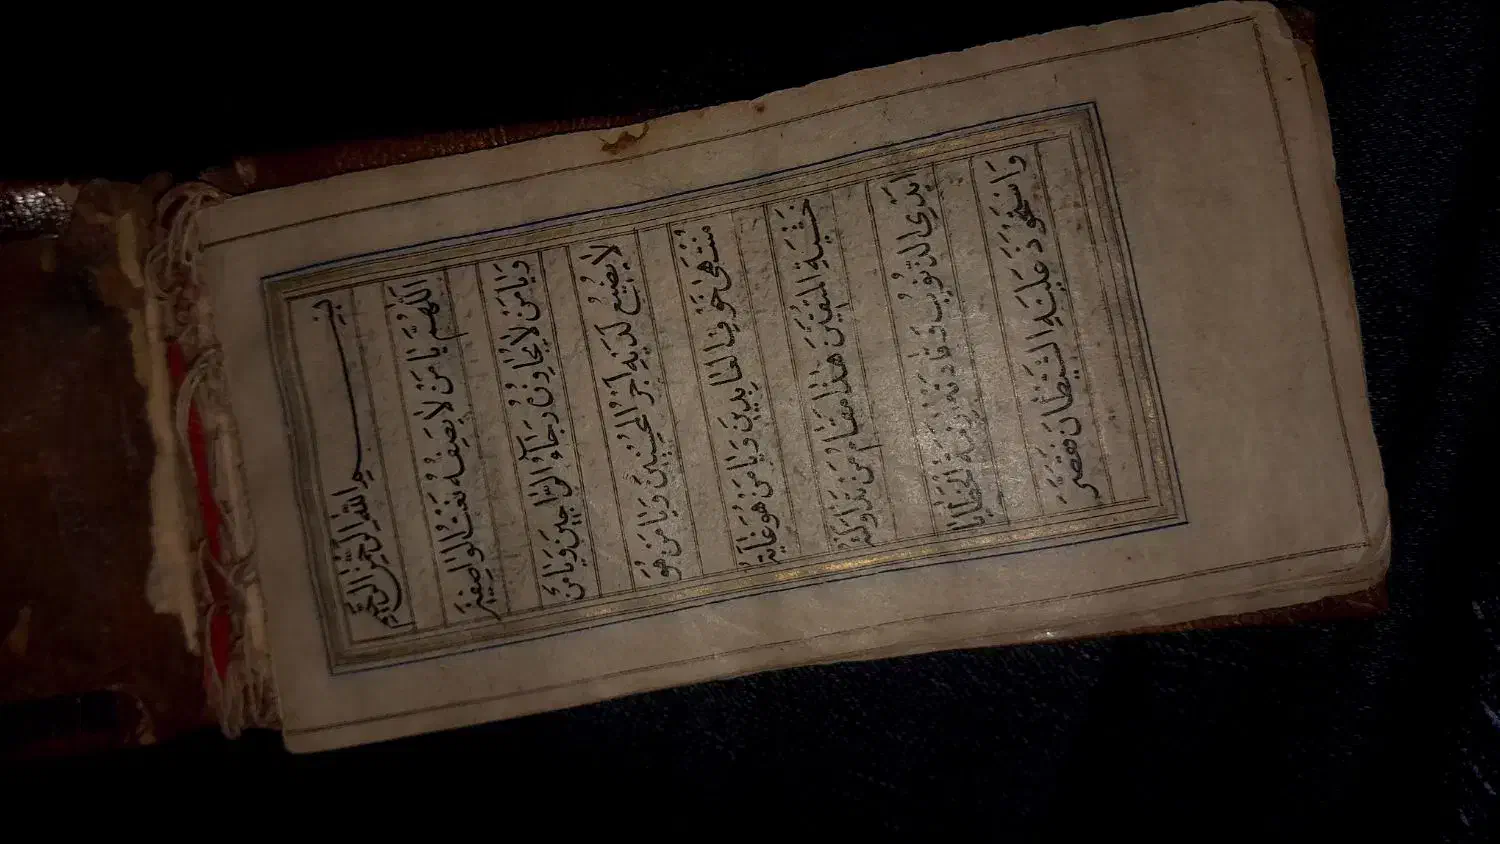 بِسْمِ اللهِ الرَّحْمٰنِ الرَّحِيْمِ
اَللّٰهُمَّ يَا مَنْ لَا يَصِفُهُ نَعْتُ الْوَاصِفِيْنَ
وَيَا مَنْ لَا يُجَاوِزُهُ رَجَآءُ الرَّاجِيْنَ وَيَا مَنْ
لَا يَضِيْعُ لَدَيْهِ اَجْرُ الْمُحْسِنِيْنَ وَيَا مَنْ هُوَ
مُنْتَهٰى خَوْفِ الْعَابِدِيْنَ وَيَا مَنْ هُوَ غَايَةُ
خَشْيَةِ الْمُتَّقِيْنَ هٰذَا مَقَامُ مَنْ تَدَاوَلَتْهُ
اَيْدِى الذُّنُوْبِ وَقَادَتْهُ اَزِمَّةُ الْخَطَايَا
وَاسْتَحْوَذَ عَلَيْهِ الشَّيْطَانُ فَقَصَّرَ